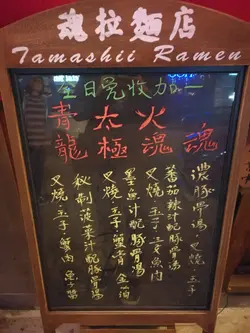 魂拉麵店
Tamashii Ramen
全日免收加一
魂
火魂
太極
青龍
濃豚骨湯、叉燒、玉子
番茄辣汁配豚骨湯
叉燒、玉子、三文魚肉
墨魚汁配豚骨湯
叉燒、玉子、蟹膏、金箔
秘制菠菜汁配豚骨湯
叉燒、玉子、蟹肉、魚子醬